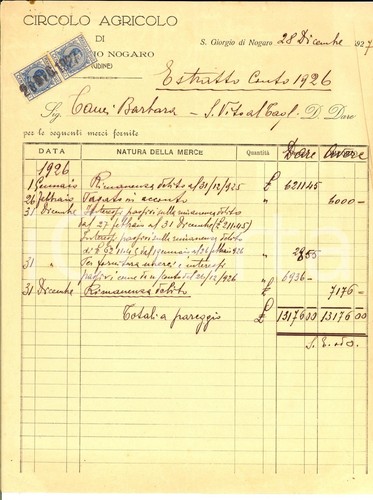 CIRCOLO AGRICOLO
DI
GIO NOGARO
(UDINE)
S. Giorgio di Nogaro 28 Dicembre 1927
Estratto Conto 1926
Sig. Barbara - S. Vito al Tagl. D Dare
per le seguenti merci fornite
DATA NATURA DELLA MERCE Quantità Dare Avere
1926
1 Gennaio Rimanenza debito al 31/12/925 £ 6211.45
26 Febbraio Pagato in acconto " 6000 -
31 Dicembre Interessi passivi sulla rimanenza debito
dal 27 febbraio al 31 Dicembre (£ 211.45)
Interessi passivi sulla rimanenza debito
di £ 6211.45 dal 1 gennaio al 26 febbraio 926 "
31 " Per fornitura merce e interessi
passivi come di n/ conto 926 " 6936 -
31 Dicembre Rimanenza debito £ 7176 -
Totali a pareggio £ 13176 00 13176 00
S. E. ed O.